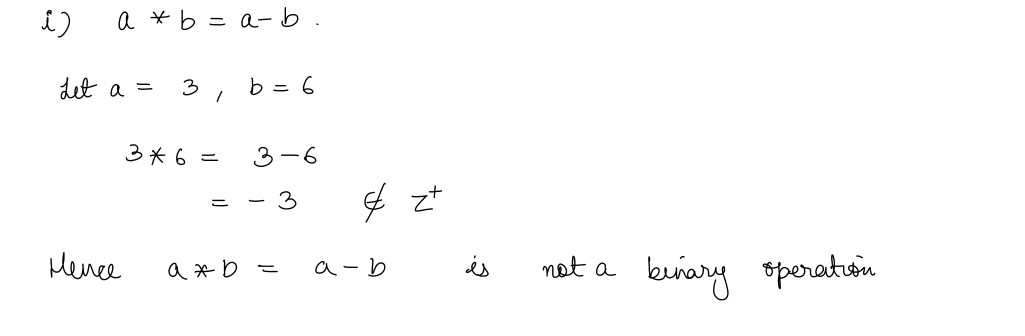 i) a * b = a - b .
Let a = 3 , b = 6
3 * 6 = 3 - 6
= - 3 ∉ Z⁺
Hence a * b = a - b is not a binary operation